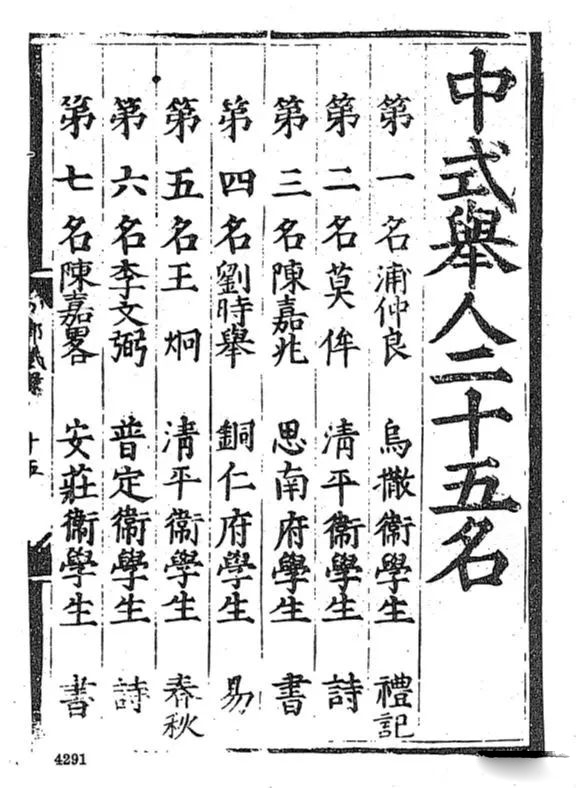 中式舉人二十五名
第一名浦仲良 烏撒衛學生 禮記
第二名莫侔 清平衛學生 詩
第三名陳嘉兆 思南府學生 書
第四名劉時舉 銅仁府學生 易
第五名王炯 清平衛學生 春秋
第六名李文弼 普定衛學生 詩
第七名陳嘉畧 安莊衛學生 書
十五
4291